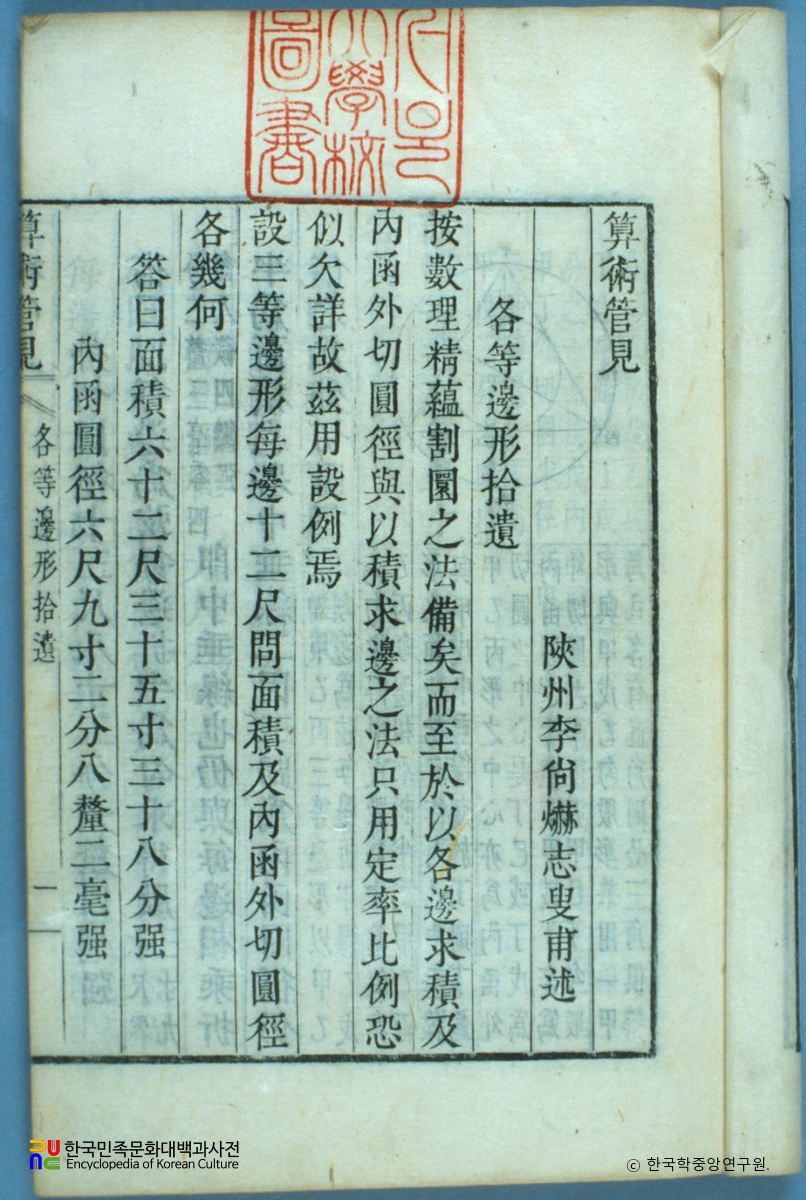 算術管見
各等邊形拾遺
陝州李尙爀志叟甫述
按數理精蘊割圜之法備矣而至於以各邊求積及
內函外切圓徑與以積求邊之法只用定率比例恐
似欠詳故茲用設例焉
設三等邊形每邊十二尺問面積及內函外切圓徑
各幾何
答曰面積六十二尺三十五寸三十八分强
內函圓徑六尺九寸二分八釐二毫强
算術管見
各等邊形拾遺
一
大學校
圖書
한국민족문화대백과사전
Encyclopedia of Korean Culture
ⓒ 한국학중앙연구원.